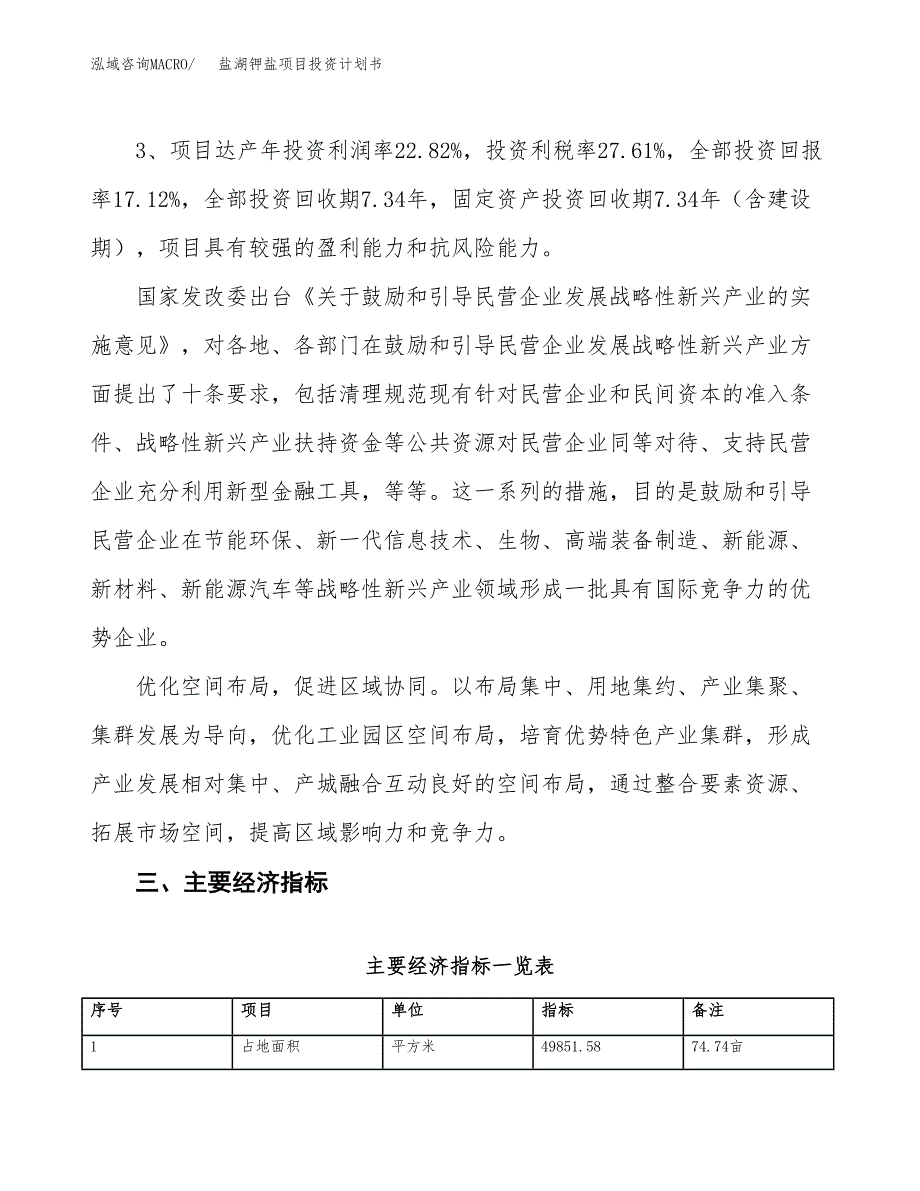 泓域咨询MACRO/ 盐湖钾盐项目投资计划书
3、项目达产年投资利润率22.82%，投资利税率27.61%，全部投资回报
率17.12%，全部投资回收期7.34年，固定资产投资回收期7.34年（含建设
期），项目具有较强的盈利能力和抗风险能力。
国家发改委出台《关于鼓励和引导民营企业发展战略性新兴产业的实
施意见》，对各地、各部门在鼓励和引导民营企业发展战略性新兴产业方
面提出了十条要求，包括清理规范现有针对民营企业和民间资本的准入条
件、战略性新兴产业扶持资金等公共资源对民营企业同等对待、支持民营
企业充分利用新型金融工具，等等。这一系列的措施，目的是鼓励和引导
民营企业在节能环保、新一代信息技术、生物、高端装备制造、新能源、
新材料、新能源汽车等战略性新兴产业领域形成一批具有国际竞争力的优
势企业。
优化空间布局，促进区域协同。以布局集中、用地集约、产业集聚、
集群发展为导向，优化工业园区空间布局，培育优势特色产业集群，形成
产业发展相对集中、产城融合互动良好的空间布局，通过整合要素资源、
拓展市场空间，提高区域影响力和竞争力。
三、主要经济指标
主要经济指标一览表
序号 项目 单位 指标 备注
1 占地面积 平方米 49851.58 74.74亩